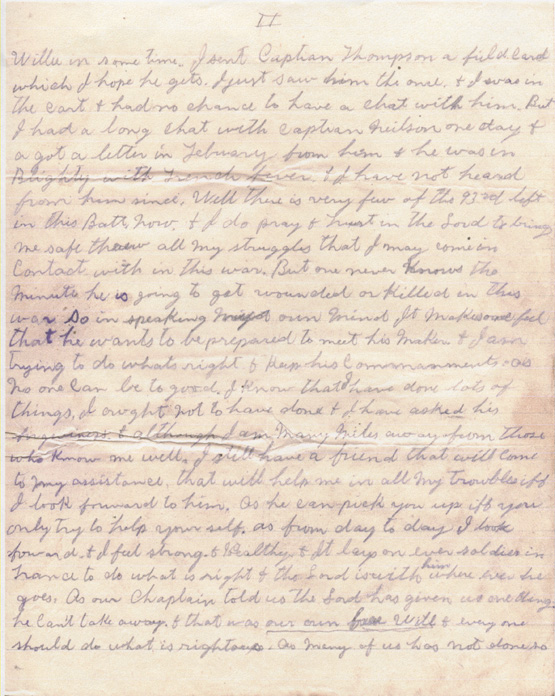 II
Willie in some time. I sent Captian Thompson a field card
which I hope he gets. I just saw him the once. & I was in
the cart & had no chance to have a chat with him. But
I had a long chat with Captian Neilson one day &
a got a letter in Febuary from him & he was in
Blighty with Trench fever. & I have not heard
from him since. Well there is very few of the 93rd left
in this Batt. Now. & I do pray & trust in the Lord to bring
me safe threw all my struggles that I may come in
Contact with in this war. But one never knows the
minute he is going to get wounded or killed in this
war So in speaking my own Mind It makes one feel
that he wants to be prepared to meet his Maker & I am
trying to do whats right & keep his Commanments. as
no one can be to good. I know that I have done lots of
things, I owght not to have done & I have asked his
forgiveness & although I am Many Miles away from those
who know me well. I still have a friend that will come
to my assistance. that will help me in all my troubles iff
I look forward to him. as he can pick you up iff you
only try to help your self. as from day to day I look
forward. & I feel strong & Healthy & It lays on ever soldier in
France to do what is right & the Lord is with him where ever he
goes. As our Chaplain told us the Lord has given us one thing.
he can't take away. & that was our own free Will & every one
should do what is rightous. as Many of us has not done so